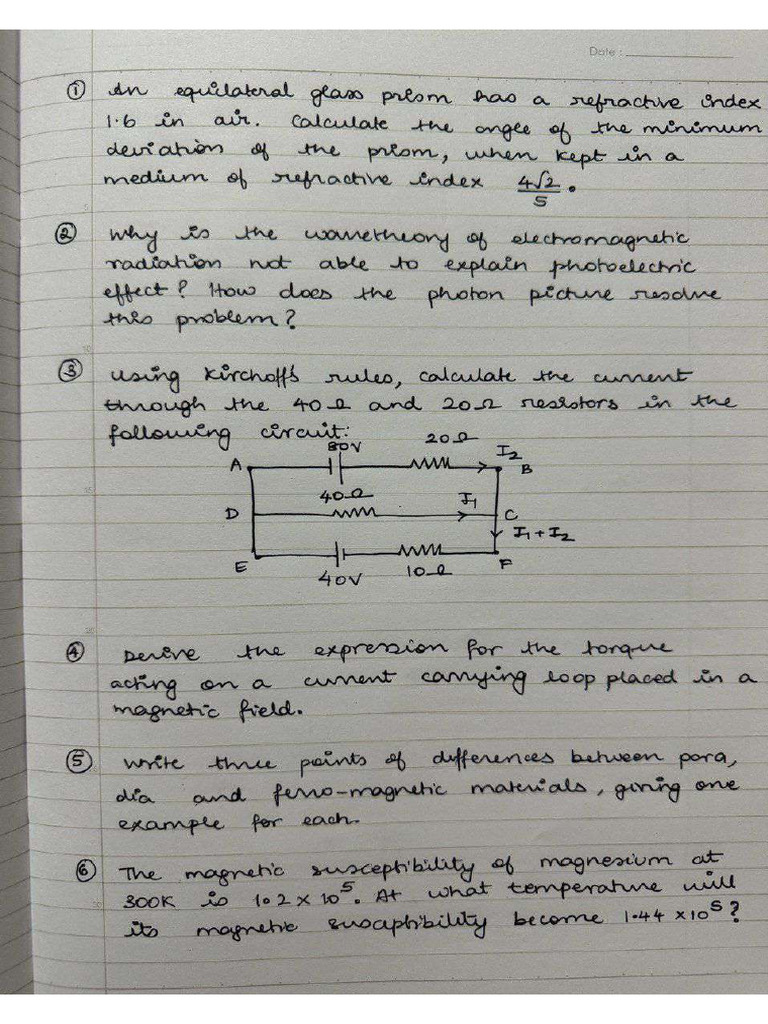 Date :
① An equilateral glass prism has a refractive index
1.6 in air. Calculate the angle of the minimum
deviation of the prism, when kept in a
medium of refractive index 4√2/5.
② Why is the wave theory of electromagnetic
radiation not able to explain photoelectric
effect? How does the photon picture resolve
this problem?
③ Using Kirchoff's rules, calculate the current
through the 40Ω and 20Ω resistors in the
following circuit:
80V 20Ω I₂
A B
40Ω I₁
D C
I₁+I₂
E F
40V 10Ω
④ Derive the expression for the torque
acting on a current carrying loop placed in a
magnetic field.
⑤ Write three points of differences between para,
dia and ferro-magnetic materials, giving one
example for each.
⑥ The magnetic susceptibility of magnesium at
300K is 1.2 × 10⁵. At what temperature will
its magnetic susceptibility become 1.44 × 10⁵?